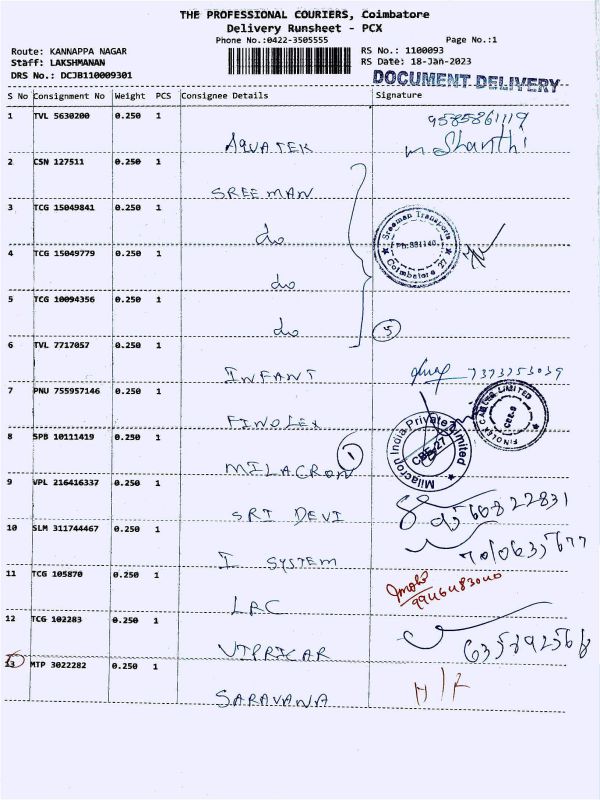 THE PROFESSIONAL COURIERS, Coimbatore
Delivery Runsheet - PCX
Phone No.:0422-3505555
Page No.:1
Route: KANNAPPA NAGAR
RS No.: 1100093
Staff: LAKSHMANAN
RS Date: 18-Jan-2023
DRS No.: DCJB110009301
DOCUMENT DELIVERY
S No Consignment No Weight PCS Consignee Details Signature
1 TVL 5630200 0.250 1
AQUATEK
9585861119
M. Shanthi
2 CSN 127511 0.250 1
SREEMAN
3 TCG 15049841 0.250 1
do
Sreeman Transports
Ph:881140
Coimbatore 27
4 TCG 15049779 0.250 1
do
5 TCG 10094356 0.250 1
do
5
6 TVL 7717057 0.250 1
INFANT
7373753039
7 PNU 755957146 0.250 1
FINOLEX
FINOLEX CABLES LIMITED
CBE-9
8 SPB 10111419 0.250 1
MILACRON
1
Milacron India Private Limited
CBE-27
9 VPL 216416337 0.250 1
SRI DEVI
10 SLM 311744467 0.250 1
I SYSTEM
11 TCG 105870 0.250 1
LRC
9946483040
12 TCG 102283 0.250 1
VIPRICAR
635892568
13 MTP 3022282 0.250 1
SARAVANA